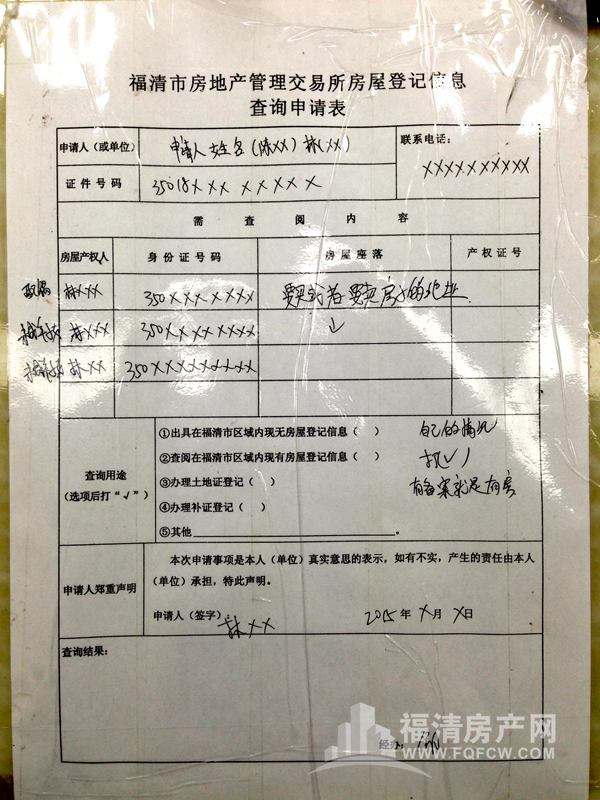 福清市房地产管理交易所房屋登记信息
查询申请表
申请人（或单位） 申请人姓名（陈XX）林（XX） 联系电话：
XXXXXXXXXX
证件号码 35018XXX XXXXX
需查阅内容
房屋产权人 身份证号码 房屋座落 产权证号
配偶 林XXX 350XXXXXXXX 要买或者要卖房子的地址
未成年子女 林XXX 350XXXXXXXX ↓
林XX 350XXXXXXXXX
查询用途
（选项后打“√”）
①出具在福清市区域内现无房屋登记信息（ ） 自己的情况
②查阅在福清市区域内现有房屋登记信息（ ） 打（√）
③办理土地证登记（ ） 有备案就是有房
④办理补证登记（ ）
⑤其他 。
申请人郑重声明
本次申请事项是本人（单位）真实意思的表示，如有不实，产生的责任由本人
（单位）承担，特此声明。
申请人（签字） 林XX 2015年X月X日
查询结果：
经办：
福清房产网
WWW.FQFCW.COM